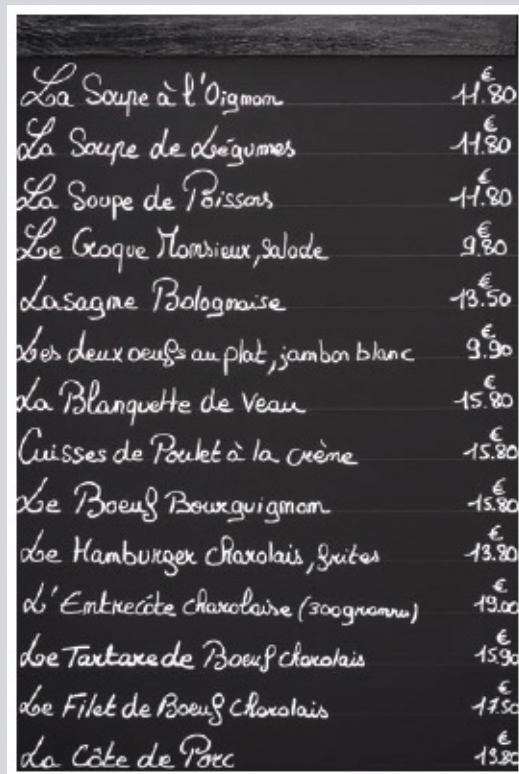 La Soupe à l'Oignon 11.80 €
La Soupe de Légumes 11.80 €
La Soupe de Poissons 11.80 €
Le Croque Monsieur, salade 9.80 €
Lasagne Bolognaise 13.50 €
Les deux oeufs au plat, jambon blanc 9.90 €
La Blanquette de Veau 15.80 €
Cuisses de Poulet à la crème 15.80 €
Le Boeuf Bourguignon 15.80 €
Le Hamburger charolais, frites 13.80 €
L'Entrecôte charolaise (300 grammes) 19.00 €
Le Tartare de Boeuf charolais 15.90 €
Le Filet de Boeuf Charolais 17.50 €
La Côte de Porc 13.80 €